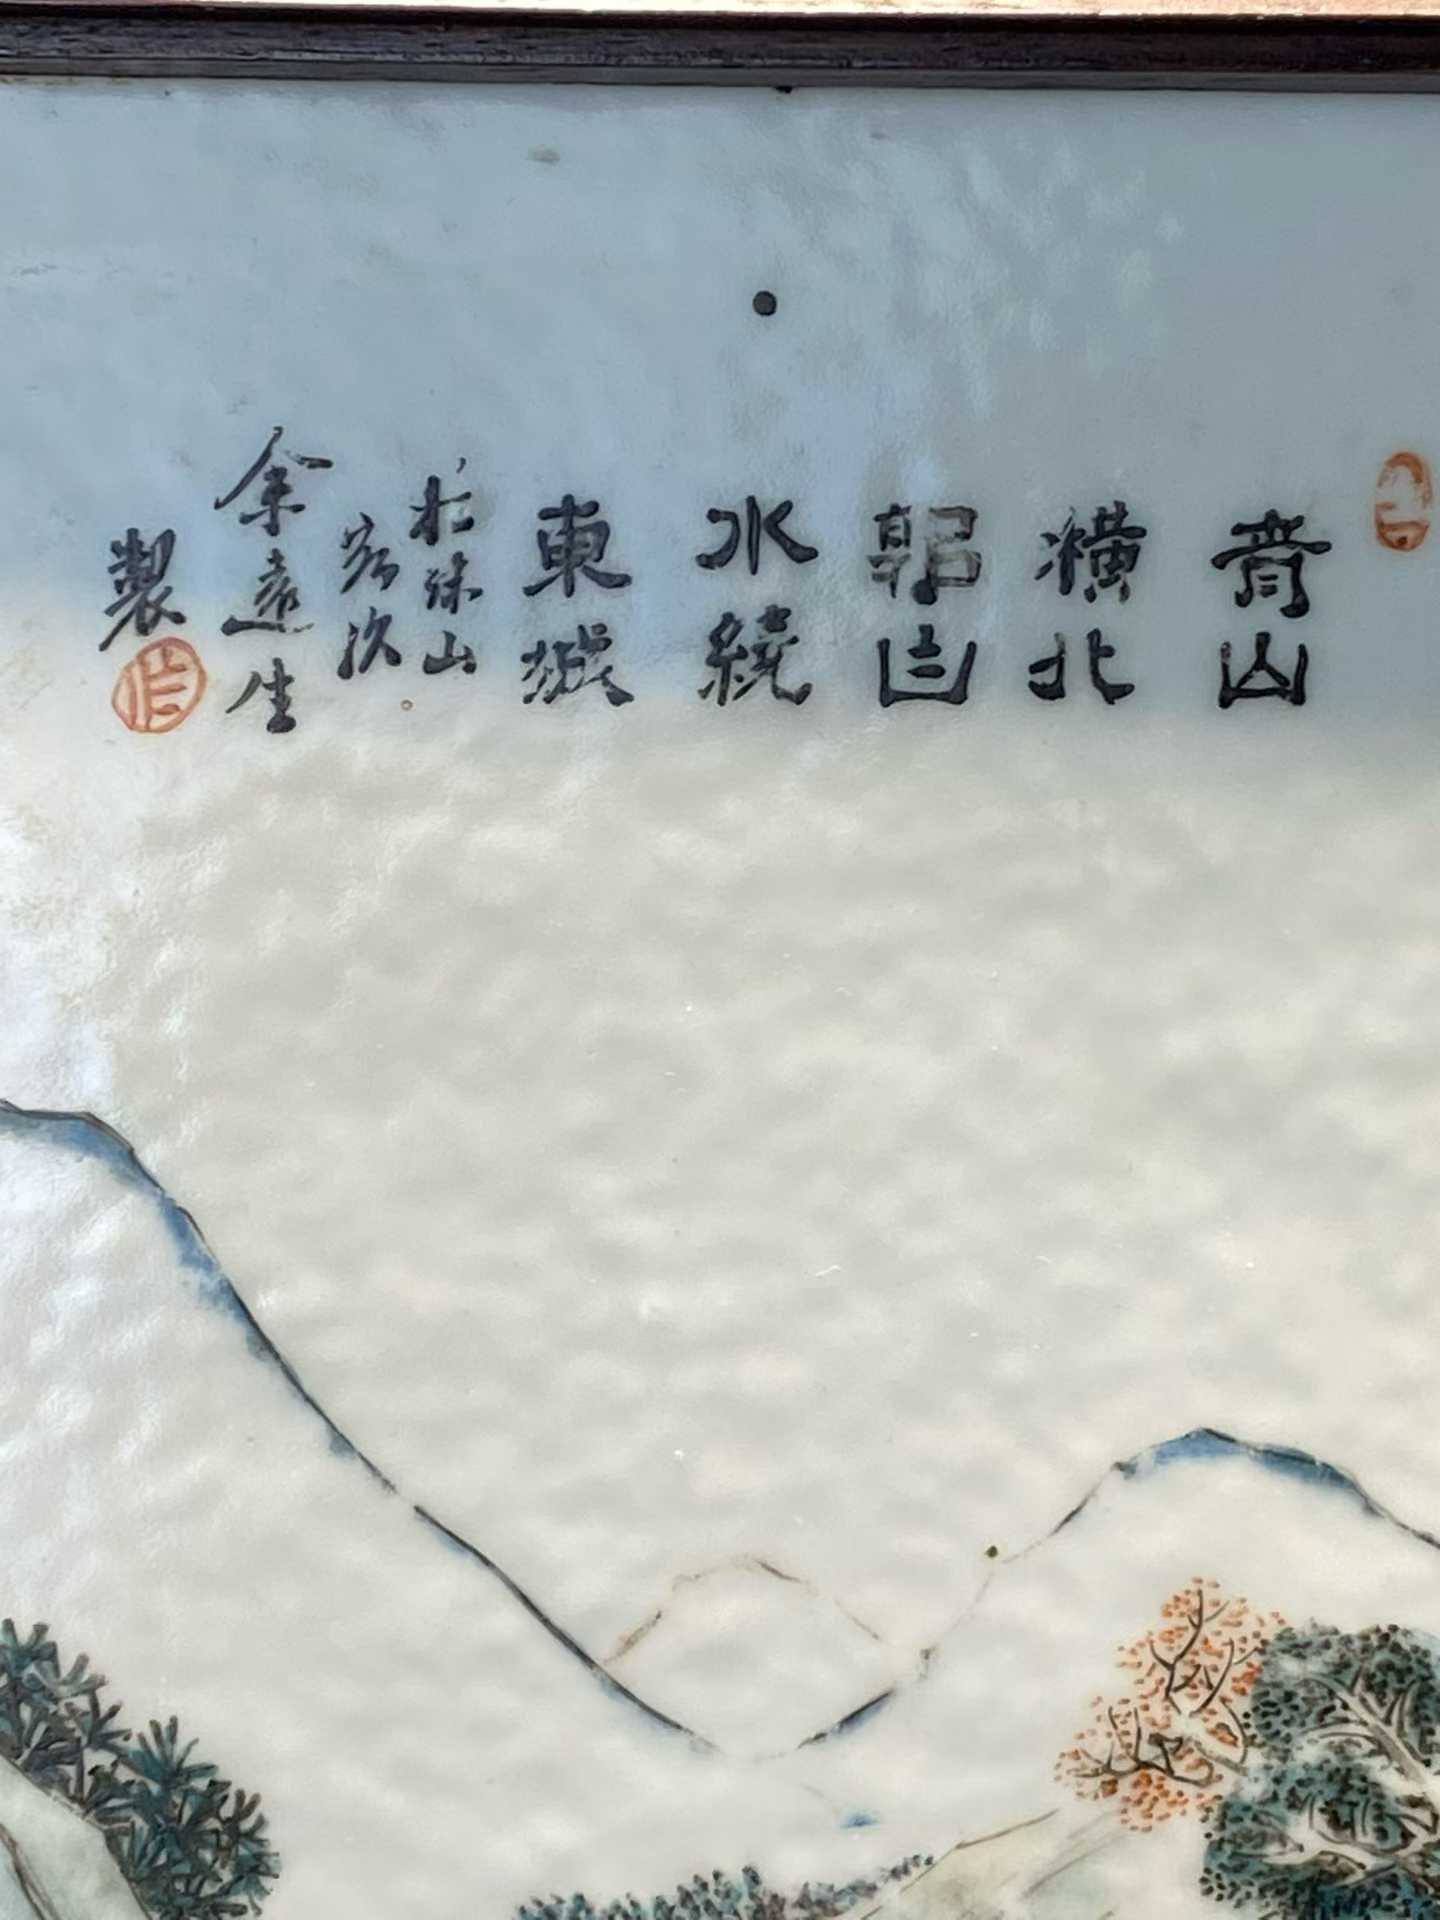 青山
橫北
郭白
水繞
東城
於珠山
客次
余遠生
製